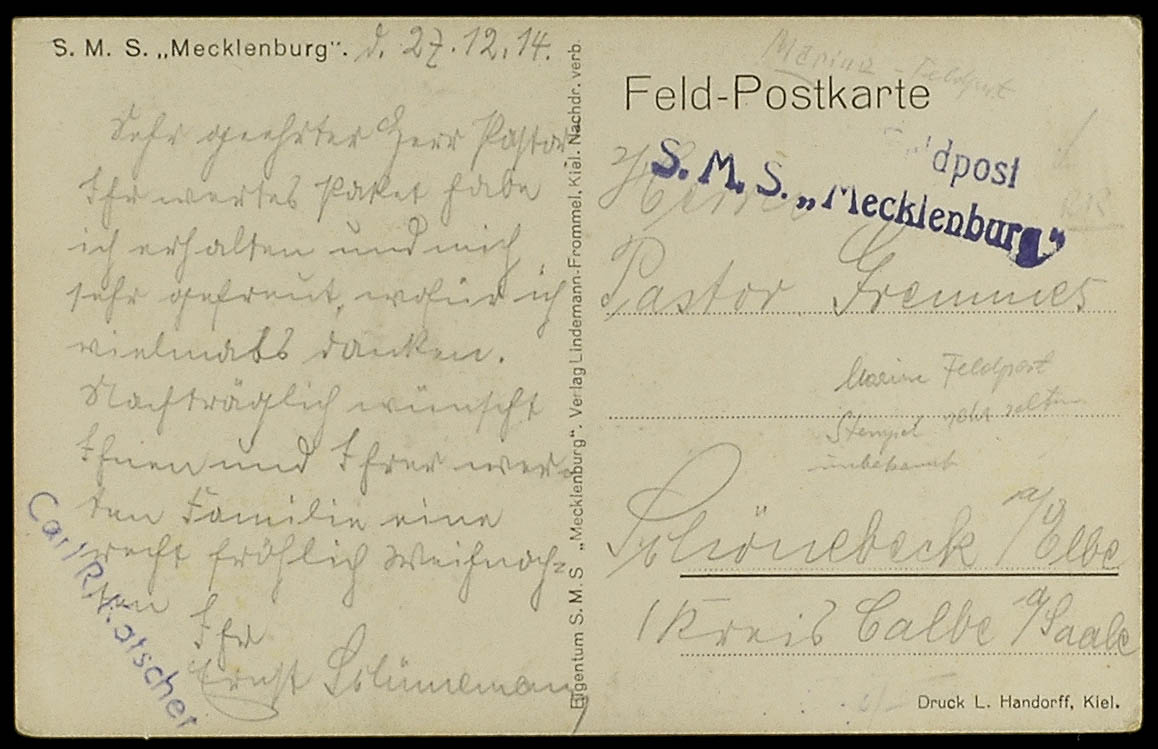 S. M. S. „Mecklenburg“. d. 27.12.14.
Sehr geehrter Herr Pastor
Ihr wertes Paket habe
ich erhalten und mich
sehr gefreut, wofür ich
vielmals danken.
Nachträglich wünscht
Ihnen und Ihrer wer-
ten Familie eine
recht fröhlich Weihnach-
ten
Ihr
Ernst Schünemann
Eigentum S. M. S „Mecklenburg“. Verlag Lindemann-Frommel, Kiel. Nachdr. verb.
Marine-Feldpost
Feld-Postkarte
dpost
S. M. S. „Mecklenburg“
Herrn
Pastor Fremmes
Marine Feldpost
Stempel sehr selten
unbekannt
Schönebeck a/Elbe
Kreis Calbe a/Saale
Druck L. Handorff, Kiel.
Carl R.